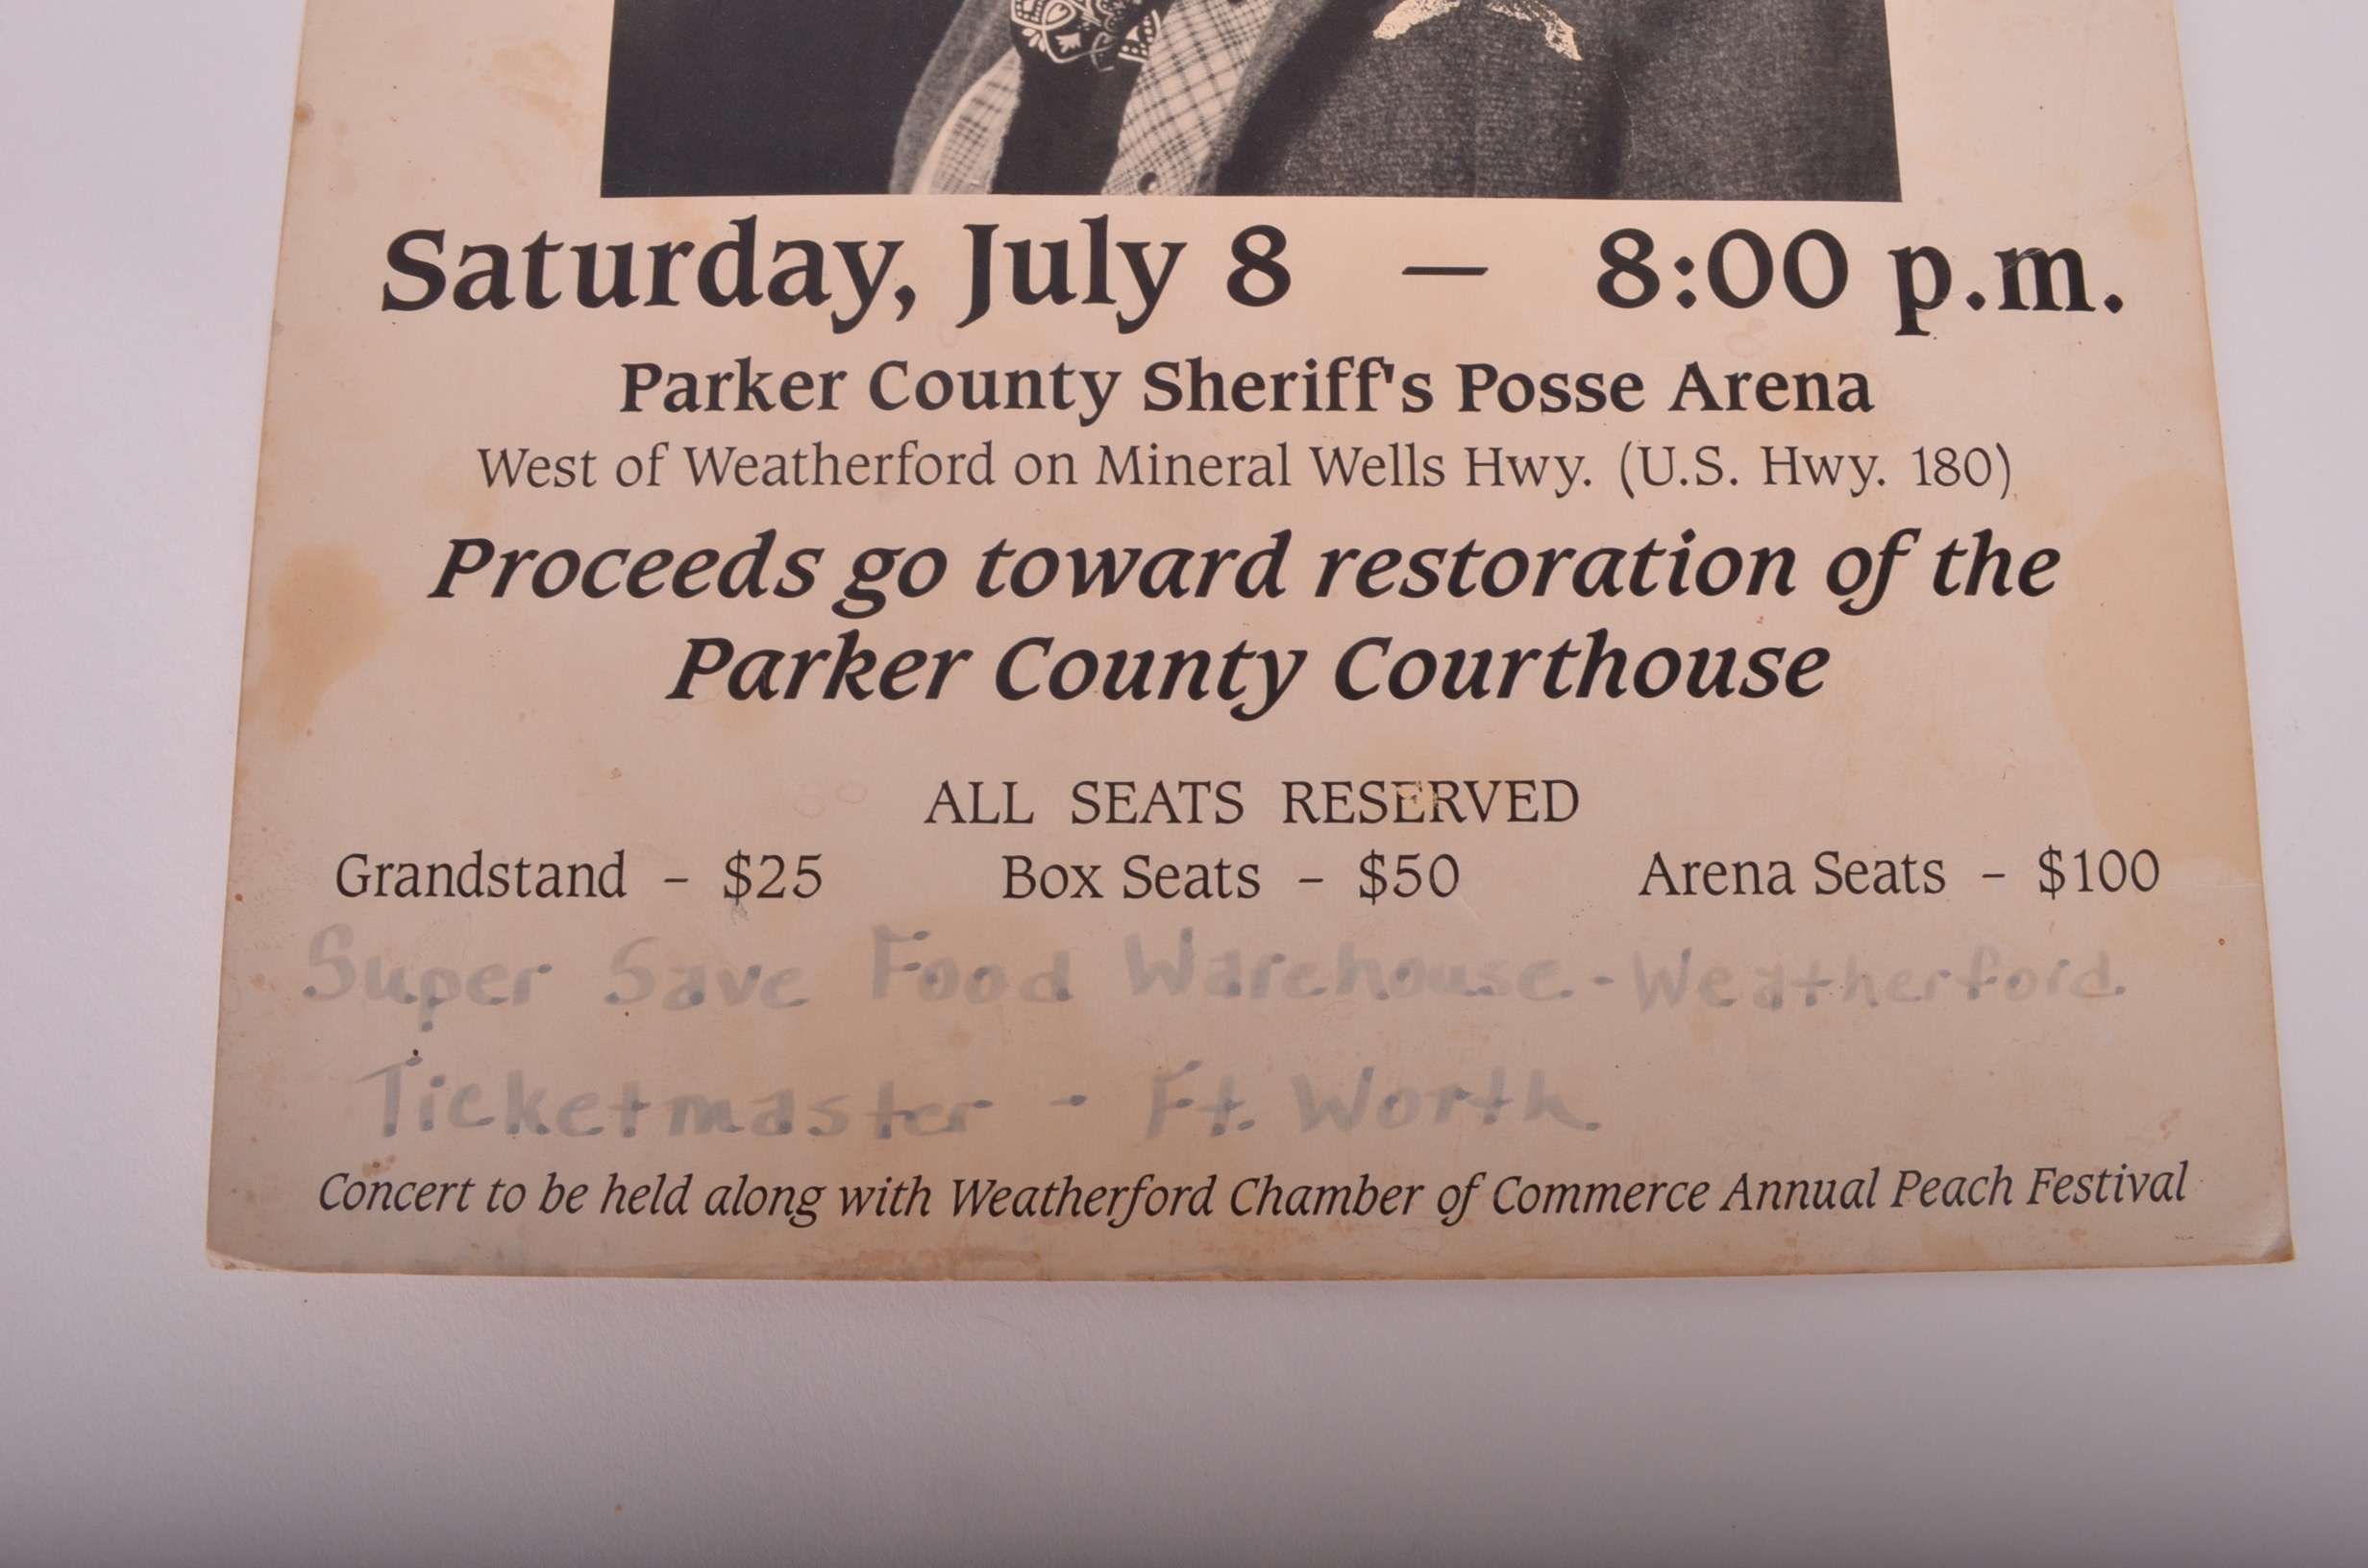 Saturday, July 8 — 8:00 p.m.
Parker County Sheriff's Posse Arena
West of Weatherford on Mineral Wells Hwy. (U.S. Hwy. 180)
Proceeds go toward restoration of the
Parker County Courthouse
ALL SEATS RESERVED
Grandstand - $25 Box Seats - $50 Arena Seats - $100
Super Save Food Warehouse - Weatherford
Ticketmaster - Ft. Worth
Concert to be held along with Weatherford Chamber of Commerce Annual Peach Festival